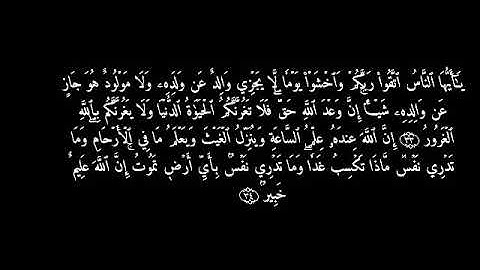 يَٰٓأَيُّهَا ٱلنَّاسُ ٱتَّقُوا۟ رَبَّكُمْ وَٱخْشَوْا۟ يَوْمًا لَّا يَجْزِي وَالِدٌ عَن وَلَدِهِۦ وَلَا مَوْلُودٌ هُوَ جَازٍ
عَن وَالِدِهِۦ شَيْـًٔا ۚ إِنَّ وَعْدَ ٱللَّهِ حَقٌّ ۖ فَلَا تَغُرَّنَّكُمُ ٱلْحَيَوٰةُ ٱلدُّنْيَا وَلَا يَغُرَّنَّكُم بِٱللَّهِ
ٱلْغَرُورُ ٣٣ إِنَّ ٱللَّهَ عِندَهُۥ عِلْمُ ٱلسَّاعَةِ وَيُنَزِّلُ ٱلْغَيْثَ وَيَعْلَمُ مَا فِي ٱلْأَرْحَامِ ۖ وَمَا
تَدْرِي نَفْسٌ مَّاذَا تَكْسِبُ غَدًا ۖ وَمَا تَدْرِي نَفْسٌۢ بِأَيِّ أَرْضٍ تَمُوتُ ۚ إِنَّ ٱللَّهَ عَلِيمٌ
خَبِيرٌۢ ٣٤